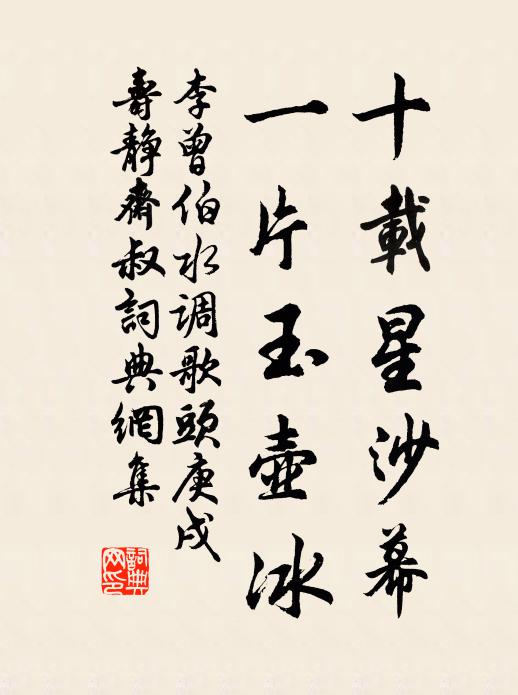 十載星沙幕
一片玉壺冰
李曾伯水调歌頭庚戌
壽静齋叔詞典網集
詞典網印